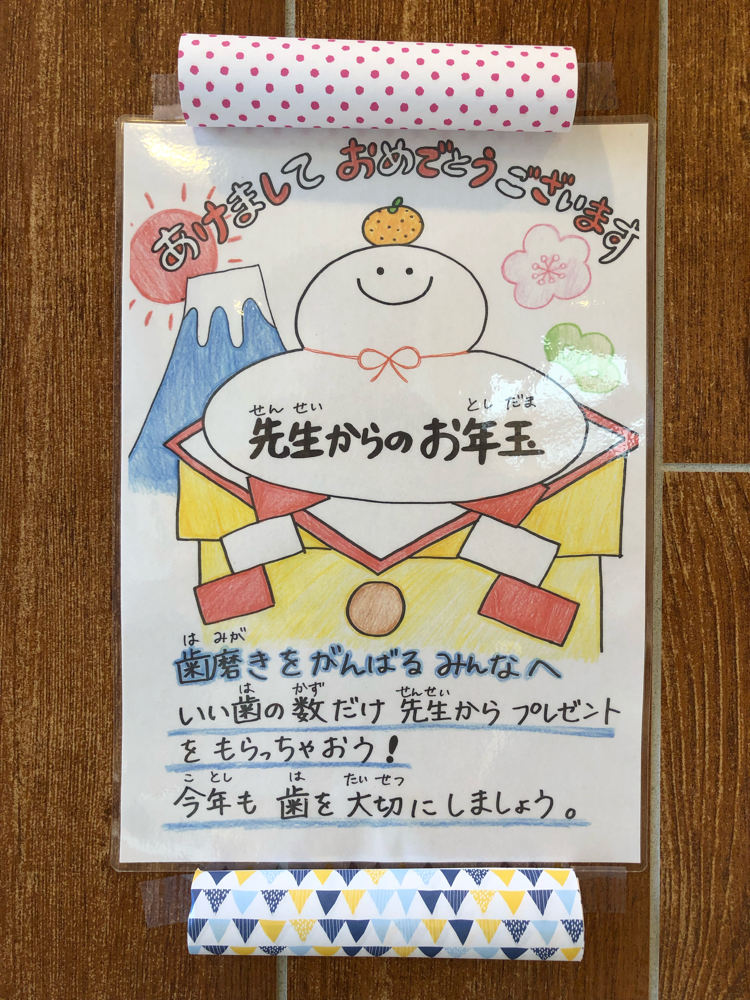 あけまして おめでとうございます
せん せい とし だま
先生からのお年玉
は みが
歯磨きをがんばる みんなへ
は かず せんせい
いい歯の数だけ 先生から プレゼント
を もらっちゃおう!
こ とし は たい せつ
今年も 歯を 大切に しましょう。